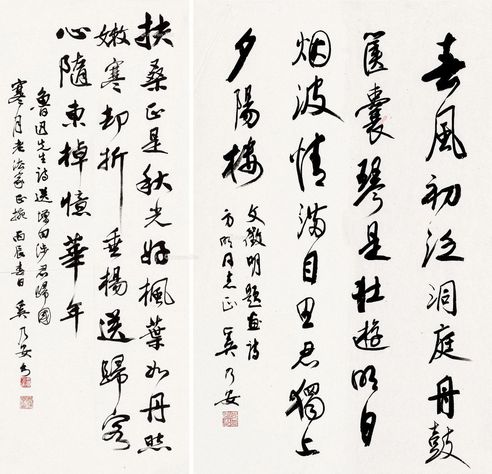 春風初泛洞庭舟鼓
篋囊琴是壮遊明日
烟波情满目思君獨上
夕陽樓
文徵明題畫詩
方明同志正 吴乃安
扶桑正是秋光好楓葉如丹照
嫩寒却折垂楊送歸客
心隨東棹憶華年
魯迅先生詩送增田涉君歸國
寒月老法家正腕 丙辰春日 吴乃安书